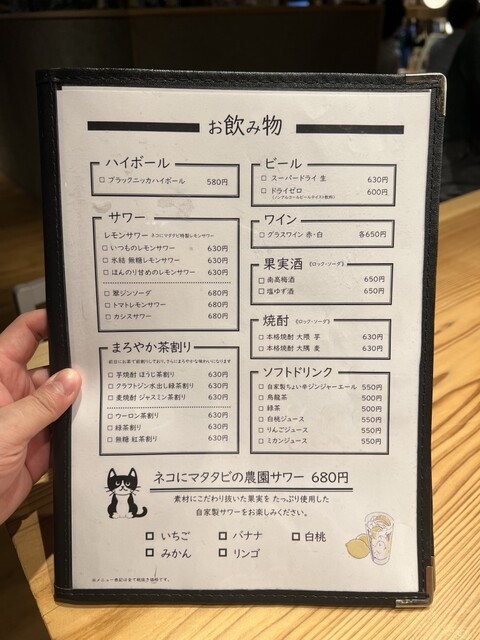 お飲み物
ハイボール
□ ブラックニッカハイボール 580円
サワー
レモンサワー ネコにマタタビ特製レモンサワー
□ いつものレモンサワー 630円
□ 氷結 無糖レモンサワー 630円
□ ほんのり甘めのレモンサワー 630円
□ 翠ジンソーダ 680円
□ トマトレモンサワー 680円
□ カシスサワー 680円
まろやか茶割り
前日にお茶で前割りしており、さらにまろやかな味わりになります
□ 芋焼酎 ほうじ茶割り 630円
□ クラフトジン水出し緑茶割り 630円
□ 麦焼酎 ジャスミン茶割り 630円
□ ウーロン茶割り 630円
□ 緑茶割り 630円
□ 無糖 紅茶割り 630円
ビール
□ スーパードライ 生 630円
□ ドライゼロ 600円
(ノンアルコールビールテイスト飲料)
ワイン
□ グラスワイン 赤・白 各650円
果実酒 《ロック・ソーダ》
□ 南高梅酒 650円
□ 塩ゆず酒 650円
焼酎 《ロック・ソーダ》
□ 本格焼酎 大隅 芋 630円
□ 本格焼酎 大隅 麦 630円
ソフトドリンク
□ 自家製ちょい辛ジンジャーエール 550円
□ 烏龍茶 500円
□ 緑茶 500円
□ 白桃ジュース 550円
□ りんごジュース 550円
□ ミカンジュース 550円
ネコにマタタビの農園サワー 680円
素材にこだわり抜いた果実を たっぷり使用した
自家製サワーをお楽しみください。
□ いちご □ バナナ □ 白桃
□ みかん □ リンゴ
※メニュー表記は全て税抜き価格です。